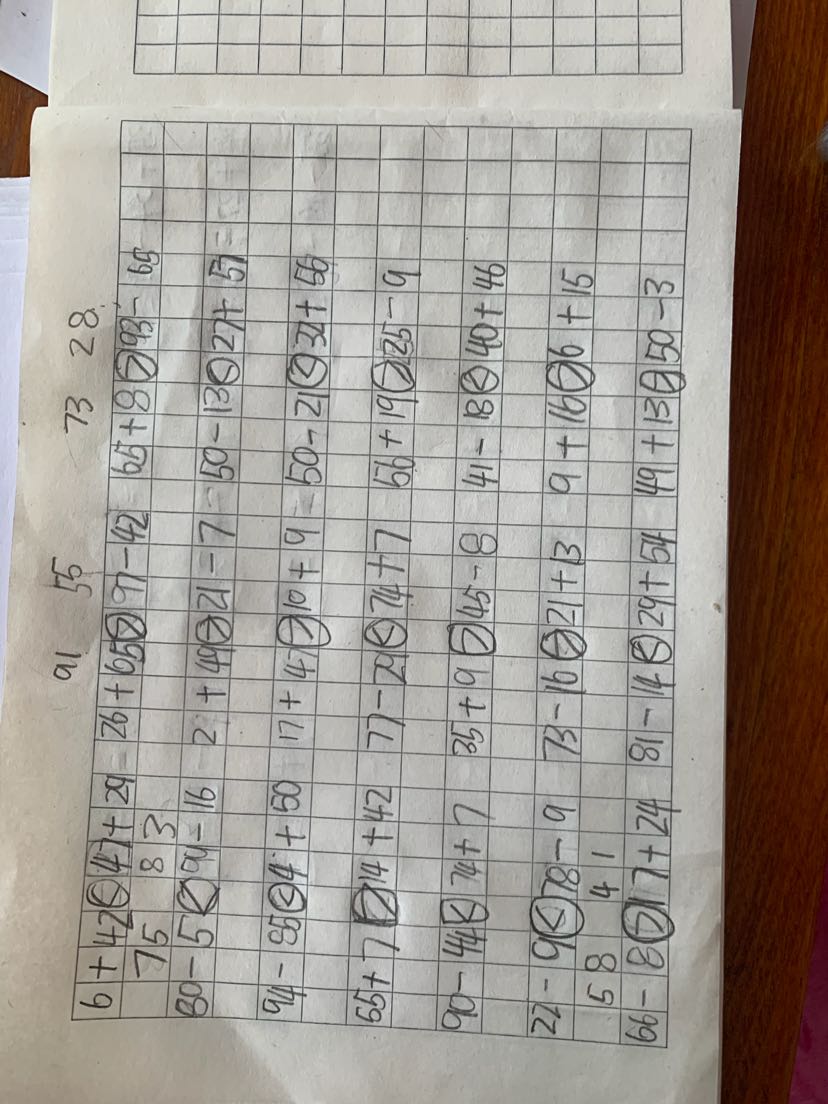 91 55 73 28
6+42<47+29 26+65>97-42 65+8>93-65
75 83
80-5<99-16 2+49>21-7 50-13<27+57
94-85<4+50 17+47>10+9 50-21<32+56
55+7>14+42 77-29<74+7 56+19>35-9
90-44<74+7 35+9>45-8 41-18<40+46
22-9<78-9 73-16>21+13 9+16>6+15
58 41
66-8>17+24 81-14<29+54 49+13>50-3